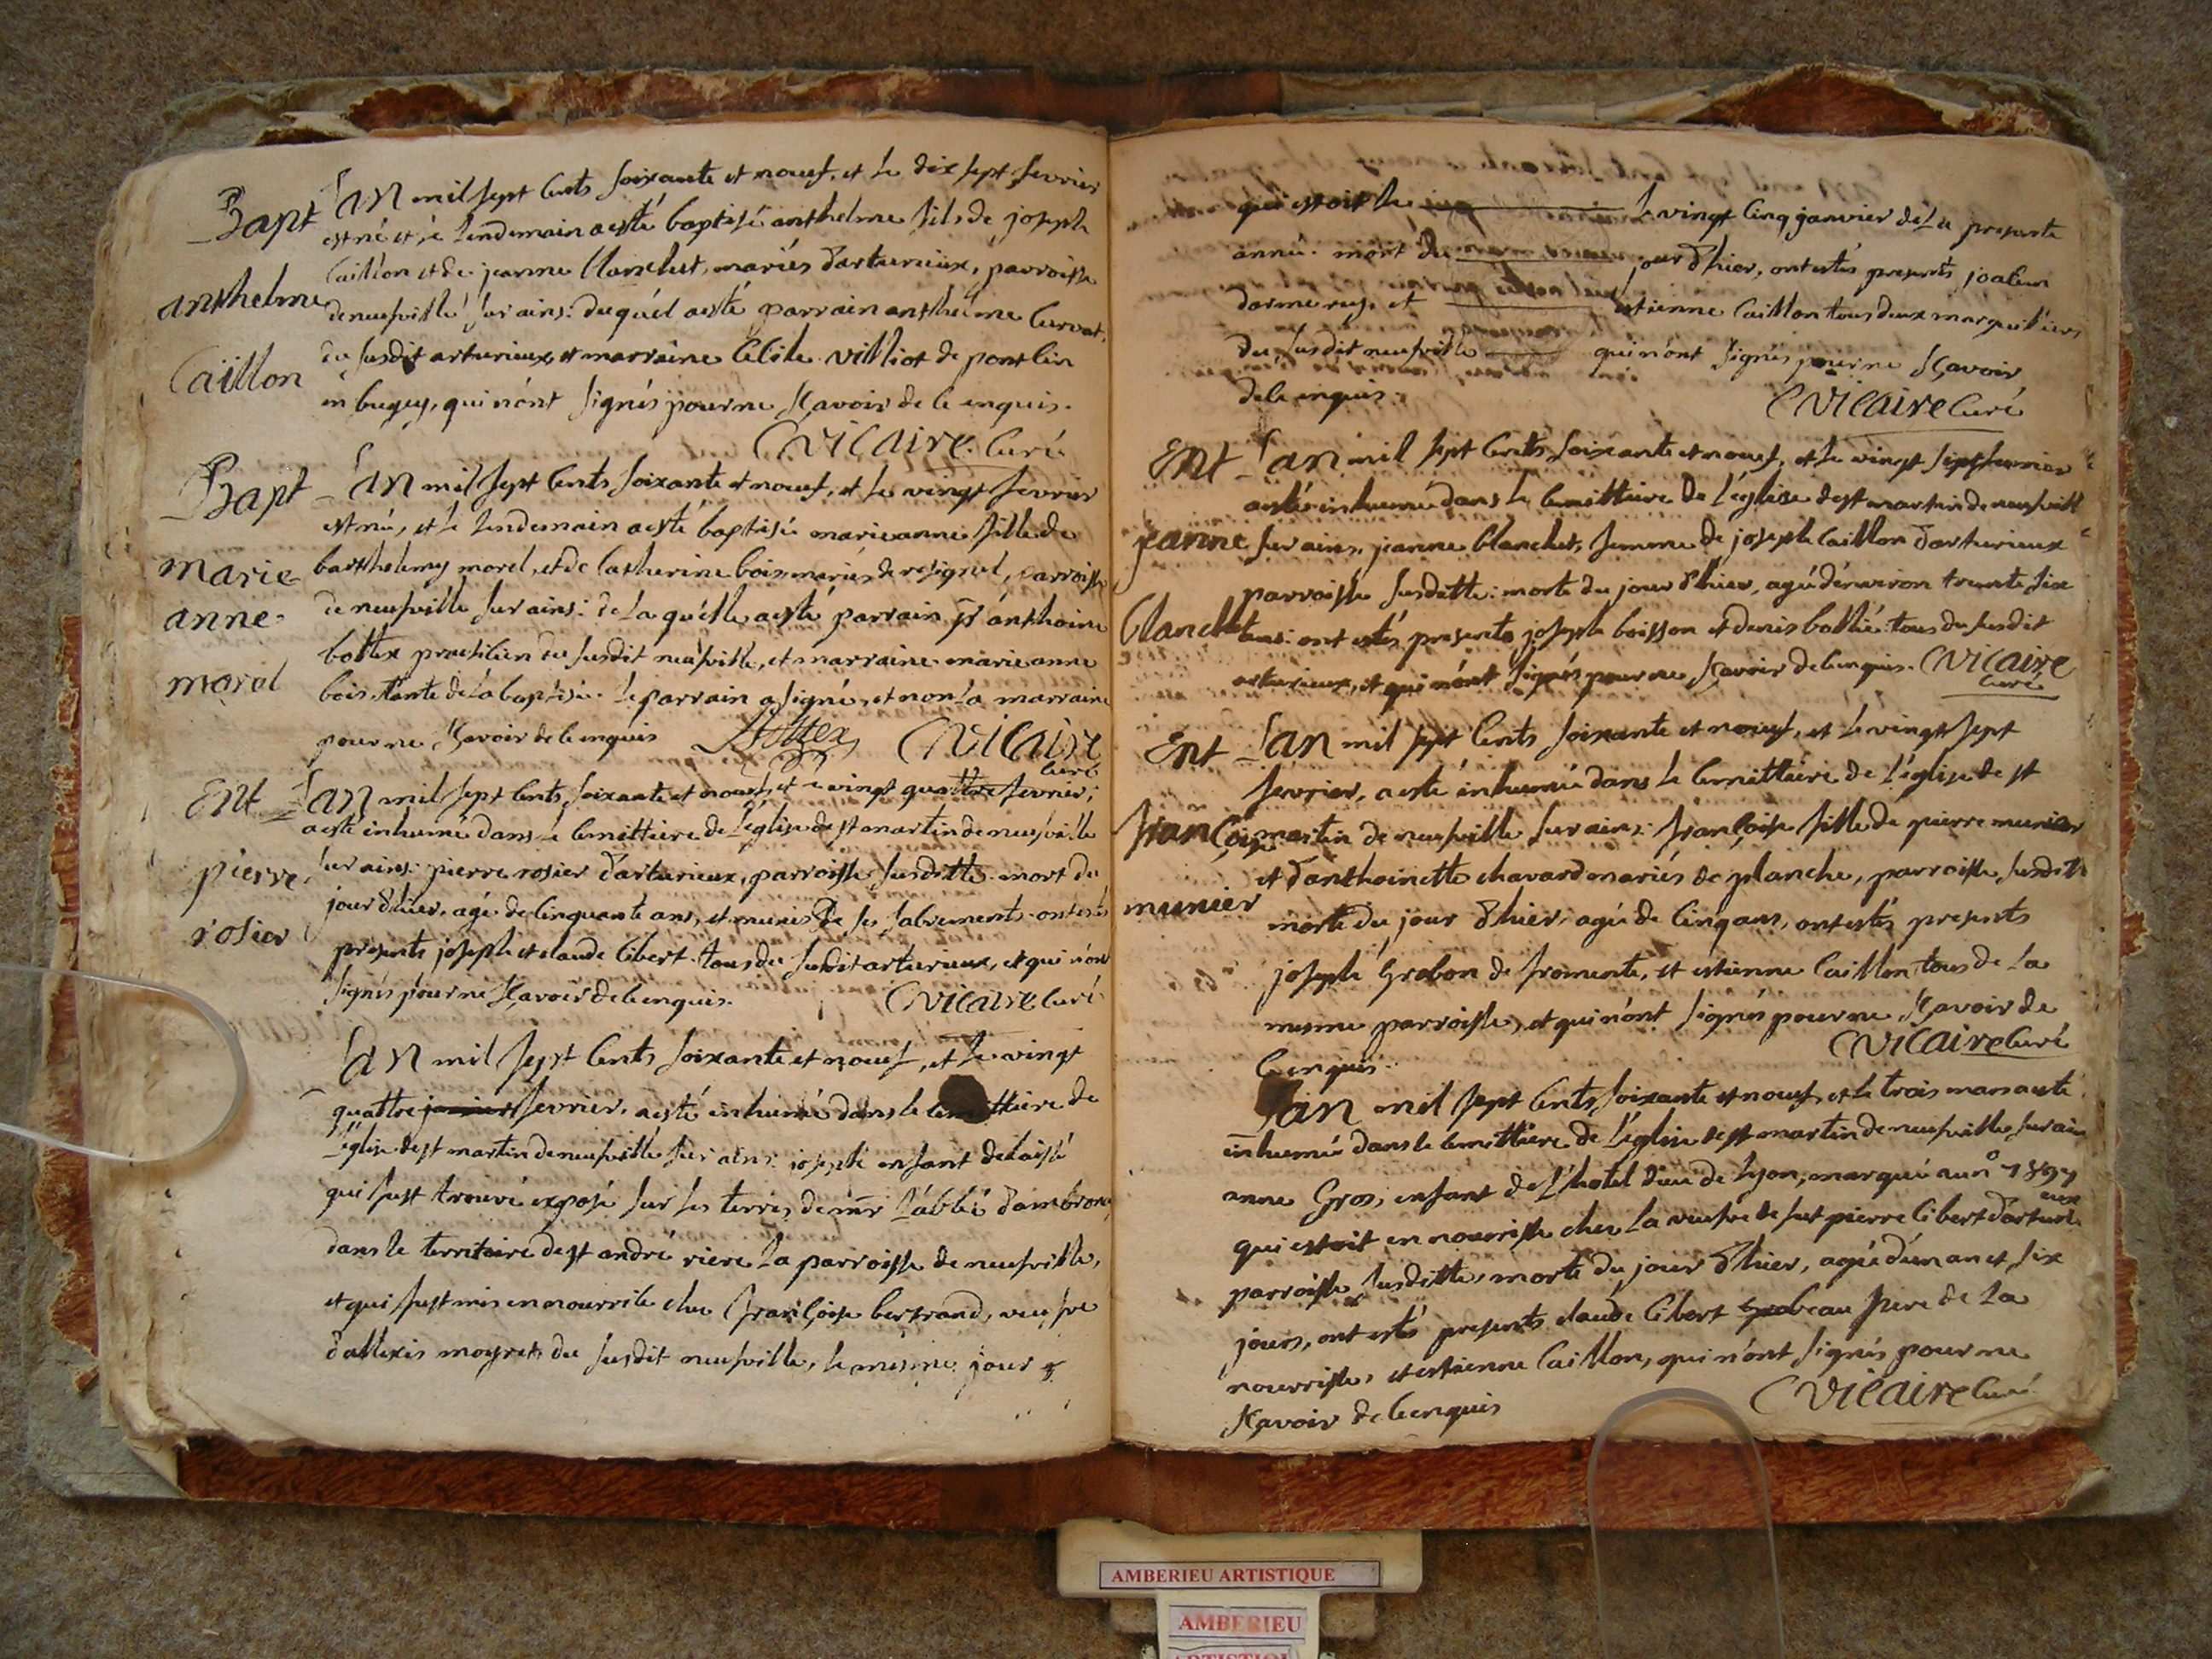 Bapt
anthelme
Caillon
L'an mil sept cents soixante et noeuf, et le dix sept fevrier
est né et le lendemain a esté baptisé anthelme fils de joseph
Caillon et de jeanne Blanchet, mariés d'arturieux, parroisse
de neufville sur ains: duquél a esté parrain anthelme Curvat,
du susdit arturieux et marraine Cécile villiot de pont Cin
en bugey, qui n'ónt signés pour ne sçavoir de ce enquis.
Vicaire Curé
Bapt
marie
anne
morel
L'an mil sept cents soixante et noeuf, et le vingt fevrier
est née, et le lendemain a esté baptisée marieanne fille de
barthelemy morel, et de Catherine bois mariés de resignel, parroisse
de neufville sur ains: de la quélle a esté parrain sr anthoine
bottex praticien du susdit neufville, et marraine marieanne
bois tante de la baptisée. le parrain a signé, et non la marraine
pour ne sçavoir de ce enquis Bottex Vicaire
Curé
Ent
pierre
rosier
L'an mil sept cents soixante et noeuf, et le vingt quattre fevrier;
a esté inhumé dans le cemittiere de l'église de st martin de neufville
sur ains: pierre rosier d'arturieux, parroisse susditte mort du
jour d'hier, agé de cinquante ans, et munis de ses sacrements. ont estés
presents joseph et claude Cibert tous du susdit arturieux, et qui n'ónt
signés pour ne sçavoir de ce enquis. Vicaire Curé
L'an mil sept cents soixante et noeuf, et le vingt
quattre janvier fevrier, a esté inhumé dans le cemittiere de
l'église de st martin de neufville sur ains: joseph enfant delaissé
qui fust trouvé exposé sur les terres de mr l'abbé d'ambronay
dans le territoire de st andré riere la parroisse de neufville,
et qui fust mis en nourrice chez françoise bertrand, veufve
d'allexis moyret du susdit neufville, le mesme jour
qui estoit le le vingt cinq janvier de la presente
année. mort du jour d'hier, ont estés presents joachim
darmerey, et estienne Caillon tous deux marguilliers
du susdit neufville qui n'ónt signés pour ne sçavoir
de ce enquis. Vicaire Curé
Ent
jeanne
Blanchet
L'an mil sept cents soixante et noeuf, et le vingt sept fevrier
a esté inhumé dans le cemittiere de l'église de st martin de neufville
sur ains, jeanne blanchet, femme de joseph Caillon d'arturieux
parroisse susditte: morte du jour d'hier, agée d'énviron trente six
ans: ont estés presents joseph boisson et denis bollié tous du susdit
arturieux, et qui n'ónt signés pour ne sçavoir de ce enquis. Vicaire
Curé
Ent
Françoise
munier
L'an mil sept cents soixante et noeuf, et le vingt sept
fevrier, a esté inhumée dans le cemittiere de l'église de st
martin de neufville sur ains: françoise fille de pierre munier
et d'anthoinette chavard mariés de planche, parroisse susditte
morte du jour d'hier, agée de cinq ans, ont estés presents
joseph Grobon de fromente, et estienne Caillon tous de la
mesme parroisse, et qui n'ónt signés pour ne sçavoir de
ce enquis. Vicaire Curé
L'an mil sept cents soixante et noeuf, et le trois mars a esté
inhumée dans le cemittiere de l'église de st martin de neufville sur ain
anne Gros, enfant de l'hotel dieu de lyon, marqué au no 1897
qui estoit en nourrisse chez la veufve de fut pierre Cibert d'arturieux
parroisse susditte, morte du jour d'hier, agée d'un an et six
jours, ont estés presents claude Cibert beau frere de la
nourrisse, et estienne Caillon, qui n'ónt signés pour ne
sçavoir de ce enquis Vicaire Curé
AMBERIEU ARTISTIQUE
AMBERIEU
ARTISTIQUE